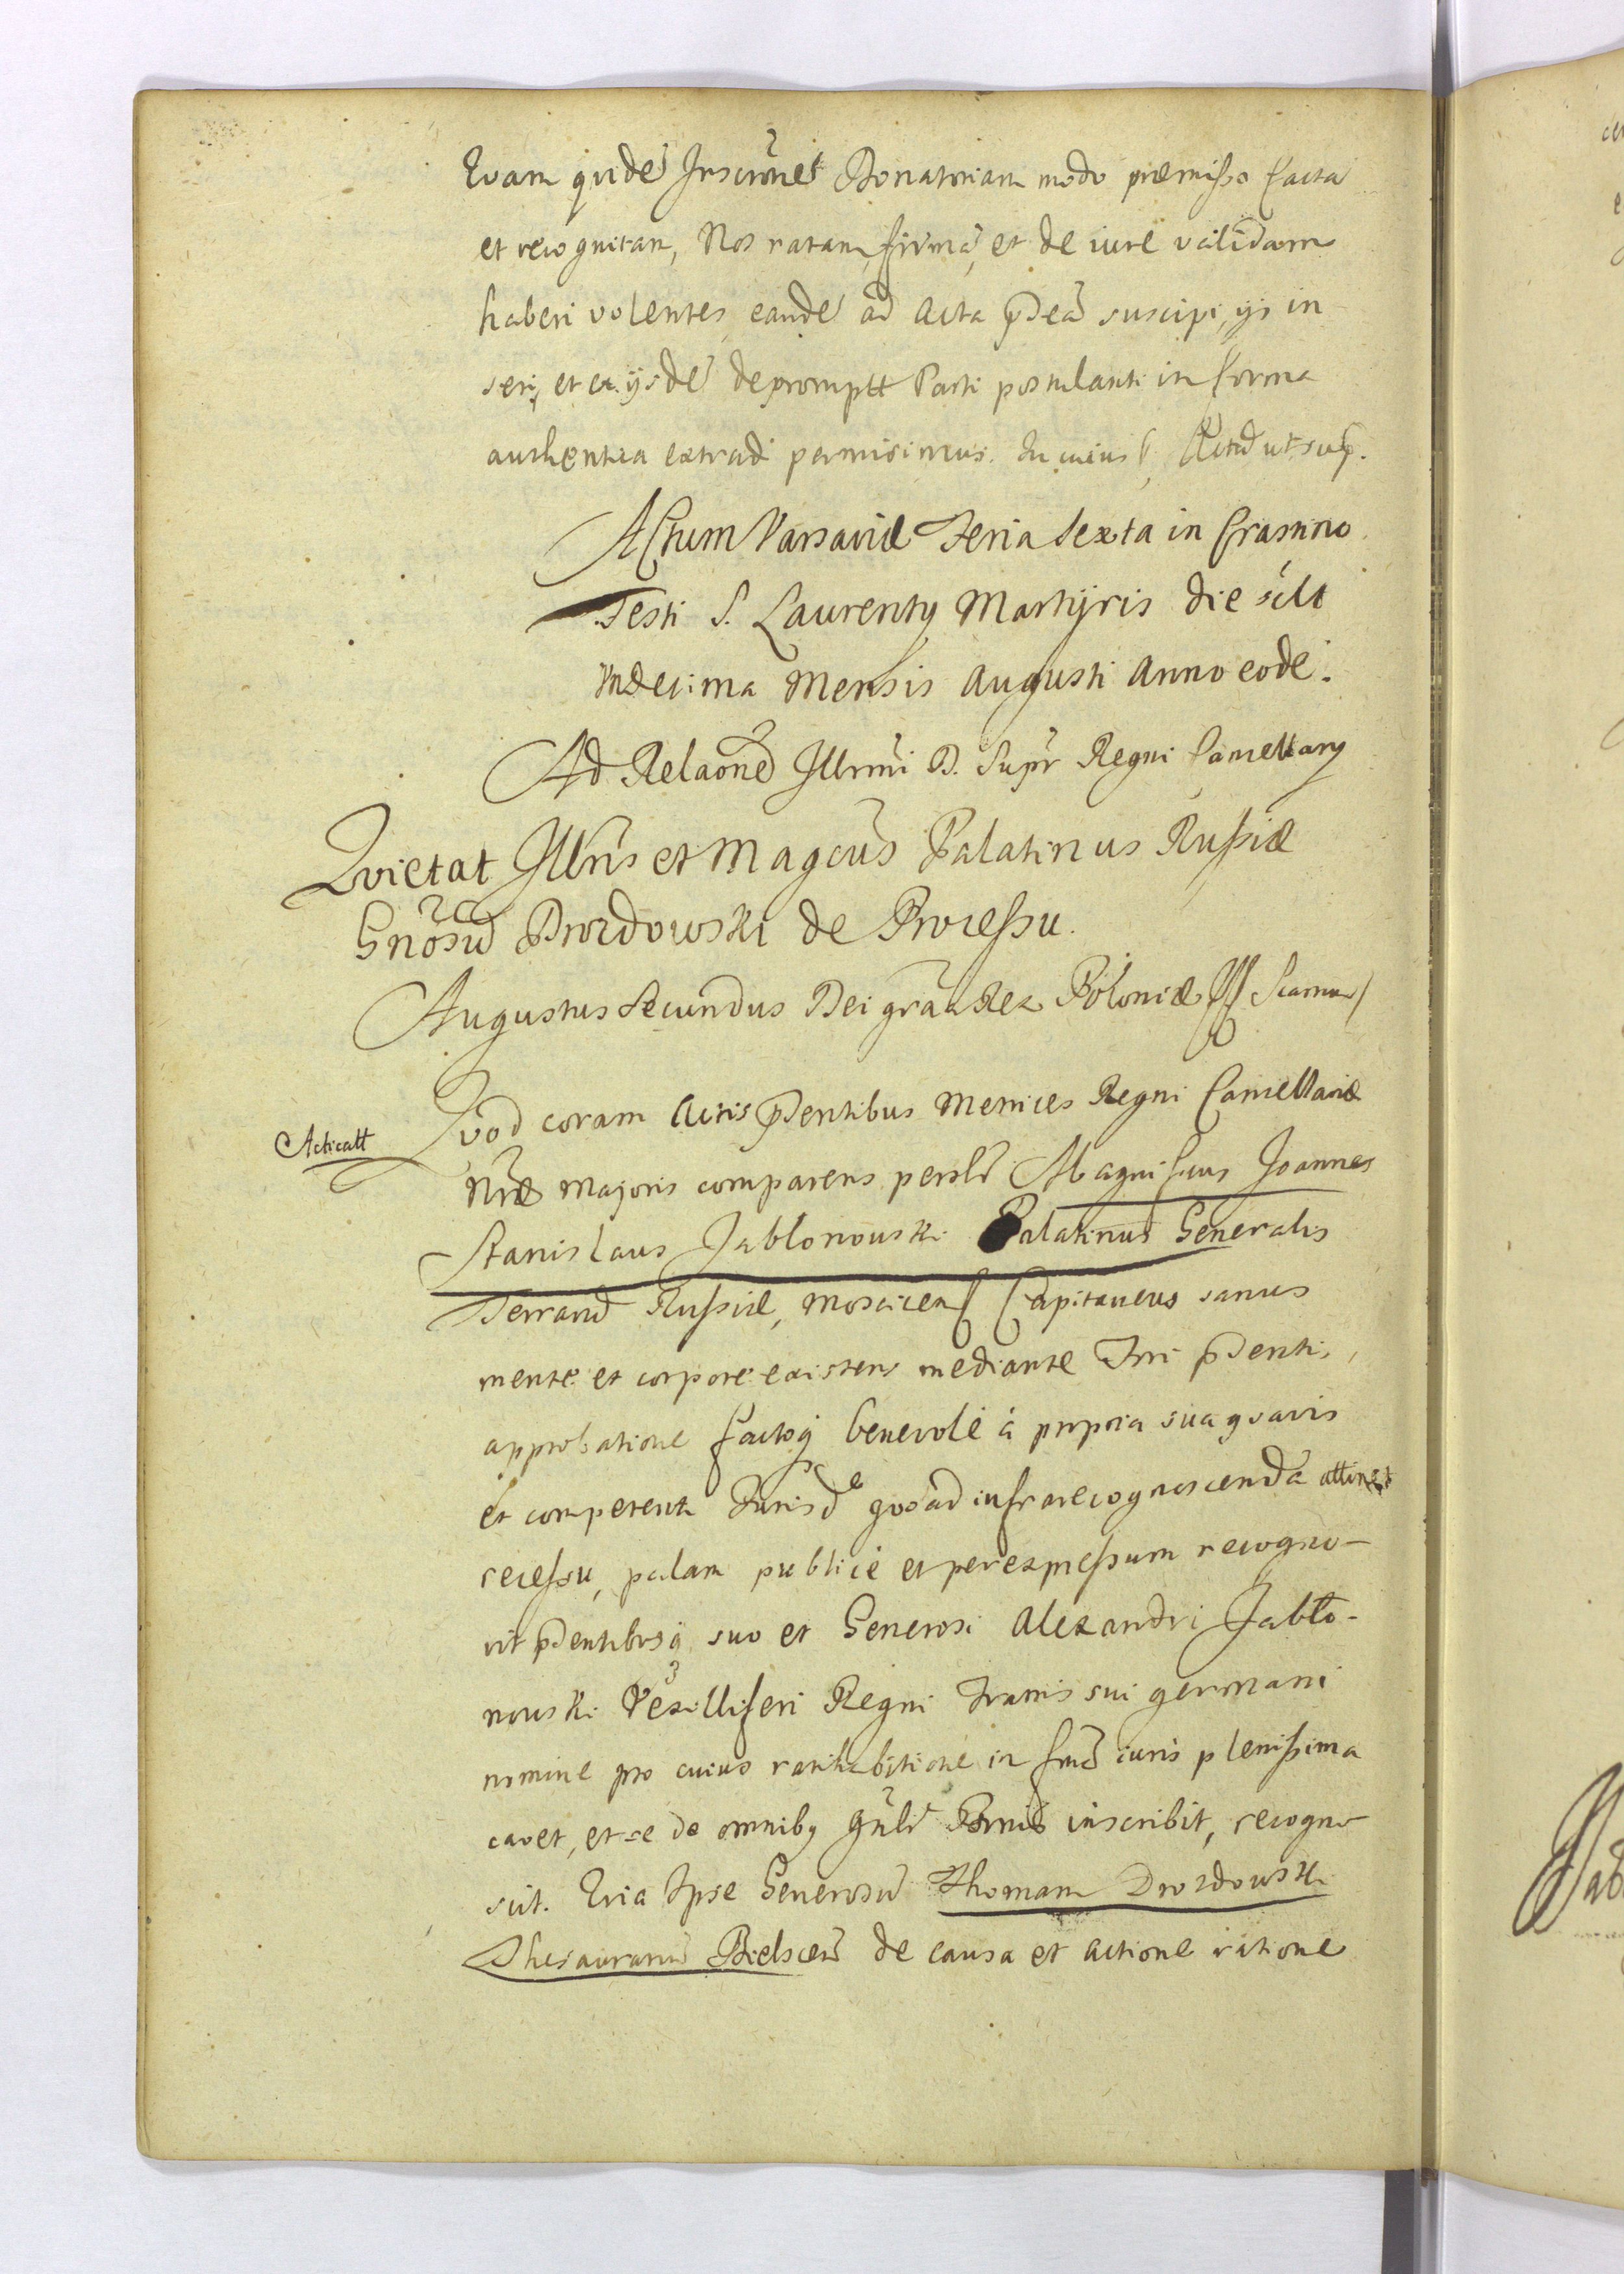 Quam quidē Inscrōnē Donatoriam modo præmisso facta
et recognitam, Nos ratam, firmā, et de iure validam
haberi volentes, eandē ad Acta pdca suscipi, ijs in
seri, et ex ijsdē deprompt Parti postulanti in forma
authentica extradi permisimus. In cuius Actū ut sup.
Actum Varsaviæ Feria Sexta in Crastino
Festi S. Laurentij Martijris die sclt
Undecima Mensis Augusti Anno eodē.
Ad Relaōnē Illrmi D. Supr Regni Cancellarij
Qvietat Illris et Magcus Palatinus Russiæ
Gnōsū Drozdowski de Processu.
Augustus Secundus Dei grā Rex Poloniæ
Acticatt
Quod coram Actis pdentibus Metrices Regni Cancellariæ
Nræ Majoris comparens persłr Magnificus Joannes
Stanislaus Jabłonowski Palatinus Generalis
Terrarū Russiæ, Moscicen Capitaneus sanus
mente et corpore existens mediante Irri pdenti
approbatione factoq benevolè à propria sua qvavis
et competenti Jurisd qvoad infrarecognoscenda attinet
recessu, palam publicè et per expressum recogno-
vit pdentibusq suo et Generosi Alexandri Jabło-
nowski Vexilliferi Regni Fratris sui germani
nomine pro cuius ratihabitione in formā iuris plenissima
cavet, et se de omnibq gnłr Bonis inscribit, recogno
scit. Qvia Ipse Generosū Thomam Drozdowski
Thesaurariū Bielscen de causa et actione ratione